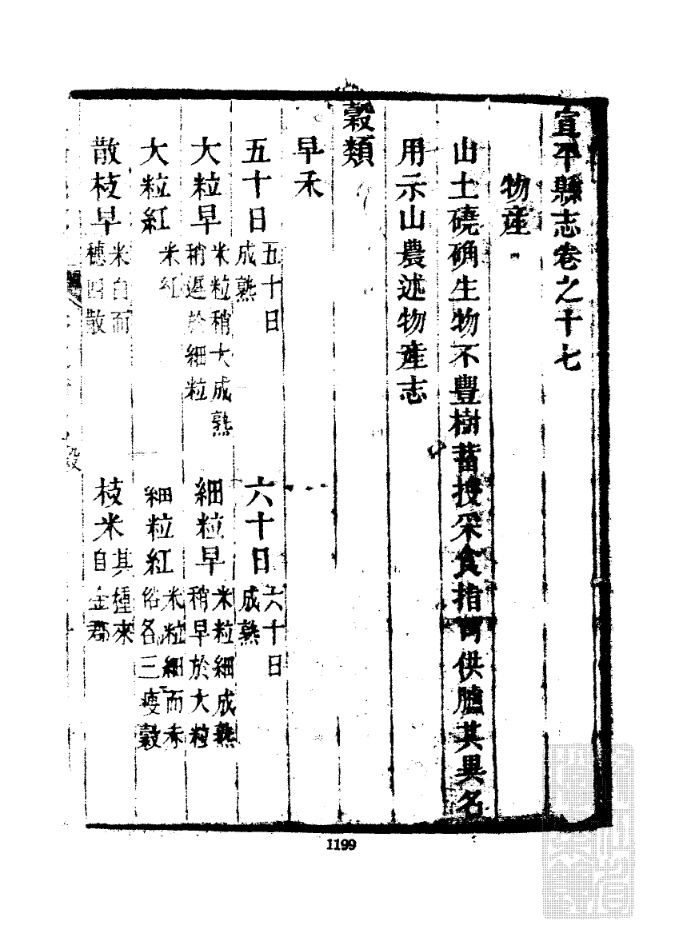 宣平縣志卷之十七
物産
山土磽确生物不豊樹蓄投采食指 供 其異名
用示山農述物産志
穀類
早禾
五十日 五十日成熟 六十日 六十日成熟
大粒早 米粒稍大成熟稍遲於細粒 細粒早 米粒細成熟稍早於大粒
大粒紅 米紅 細粒紅 米粒細而 俗名三 穀
散枝早 米白而穗 散 枝米 其種來自金郡
1199